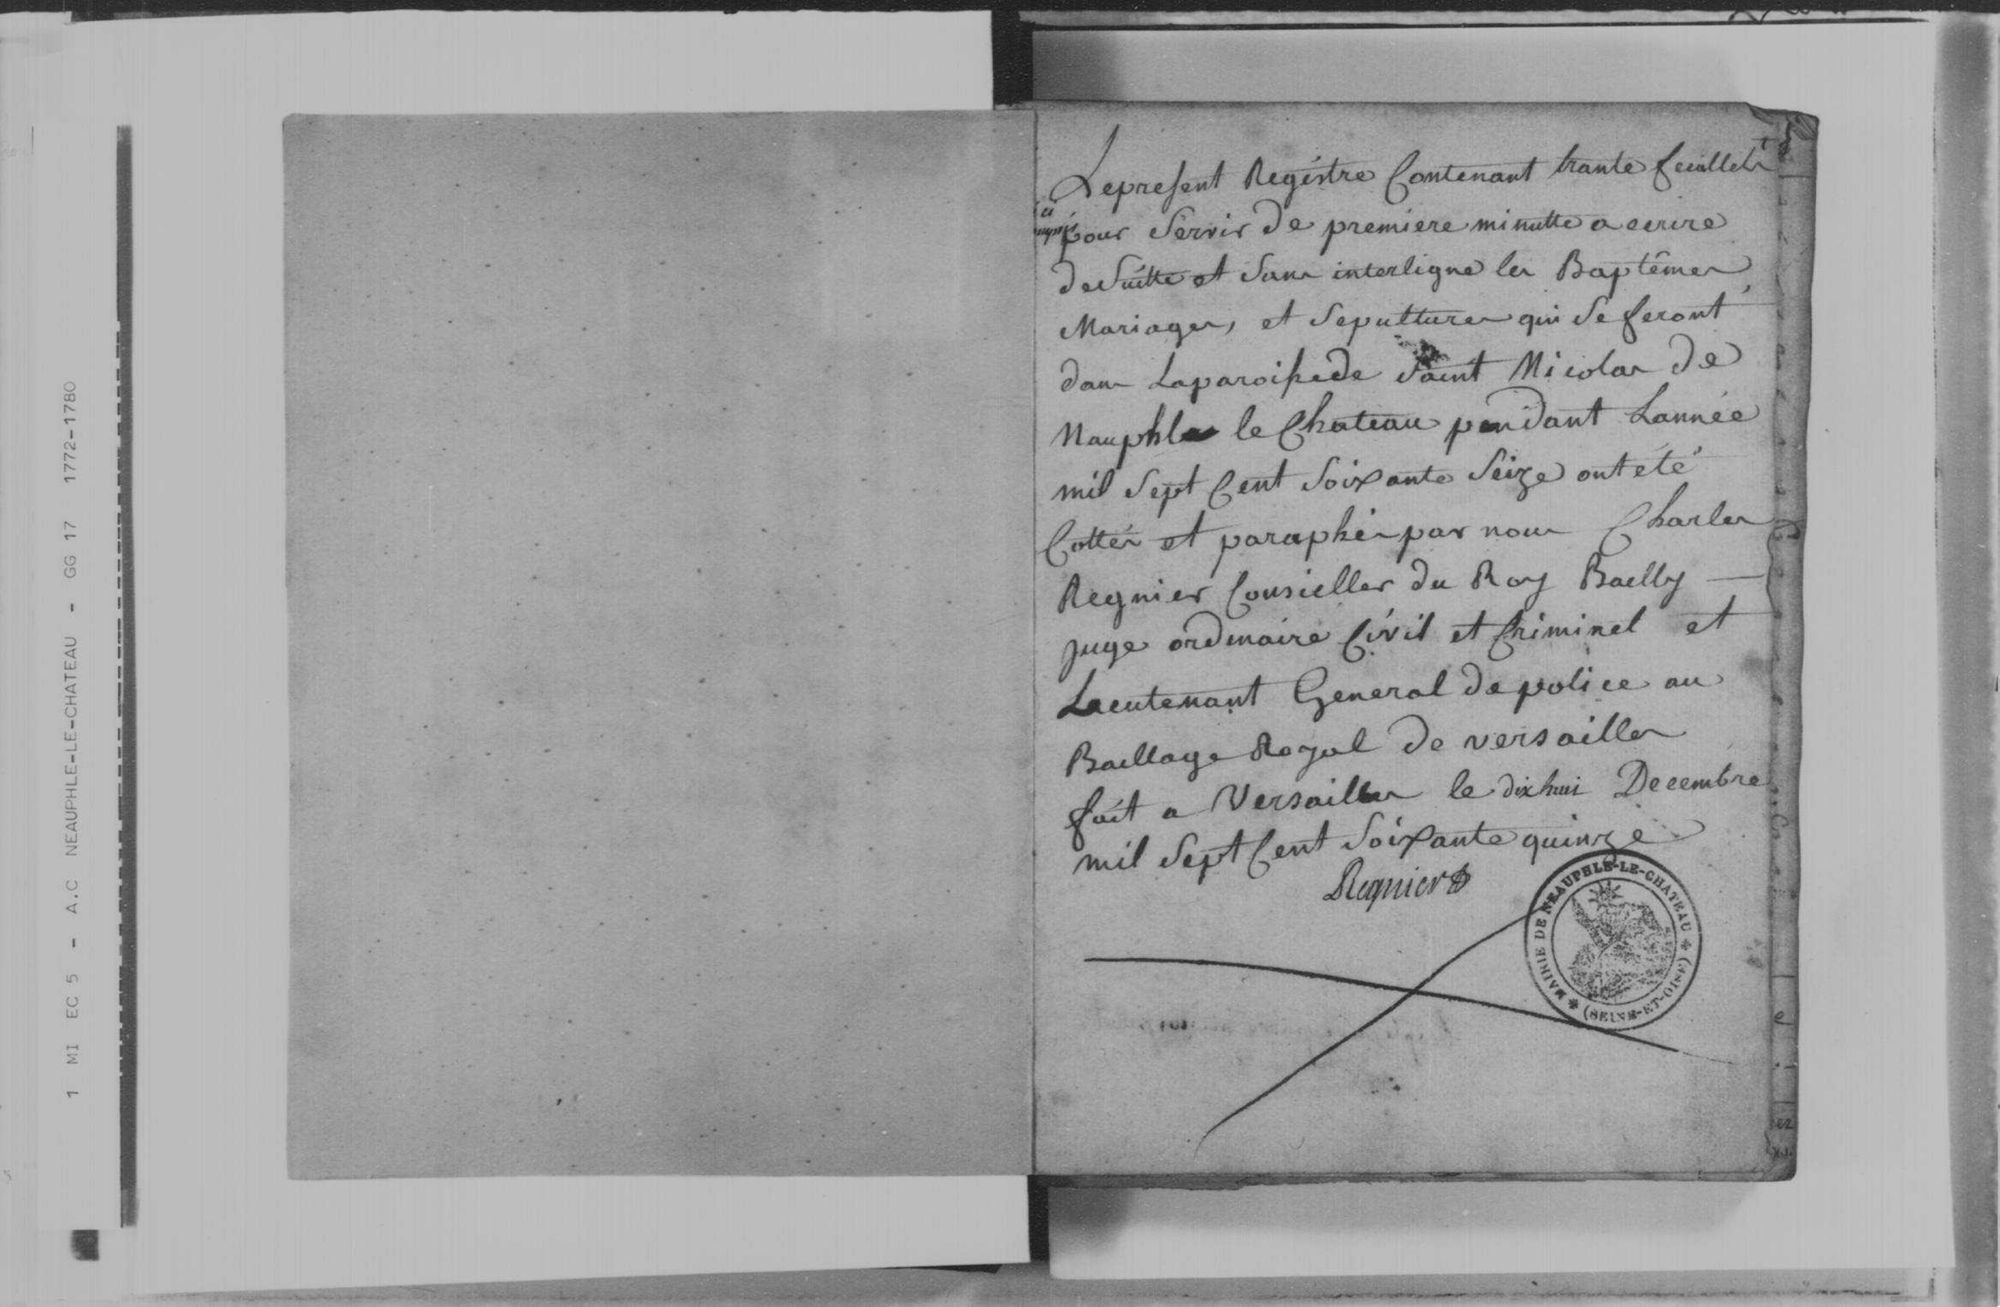 Le present Registre Contenant trante feuillets
pour Servir de premiere minutte a ecrire
de Suitte et Sans interligne les Baptêmes
Mariages, et Sepultures qui Se feront
dans La paroisse de Saint Nicolas de
Nauphle le Chateau pendant Lannée
mil Sept Cent Soixante Seize ont été
Cottés et paraphés par nous Charles
Regnier Consieller du Roy Bailly
Juge ordinaire Civil et Criminel et
Lieutenant General de police au
Baillage Royal de versailles
fait a Versailles le dix huit Decembre
mil Sept Cent Soixante quinze
Regnier
MAIRIE DE NEAUPHLE-LE-CHATEAU
(SEINE-ET-OISE)
1 MI EC 5 - A.C NEAUPHLE-LE-CHATEAU - GG 17 1772-1780